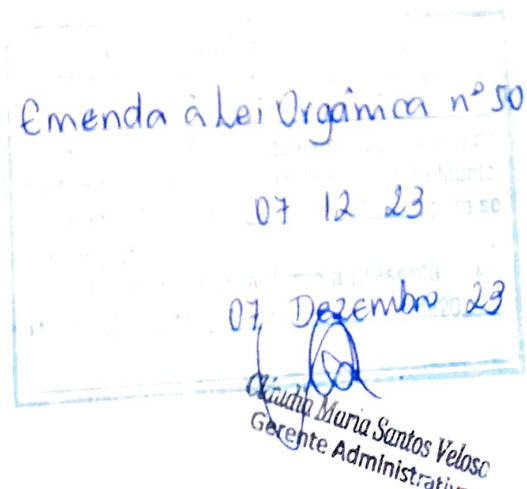 Emenda à Lei Orgânica nº 50
07 12 23
07 Dezembro 23
Cláudia Maria Santos Veloso
Gerente Administrativ